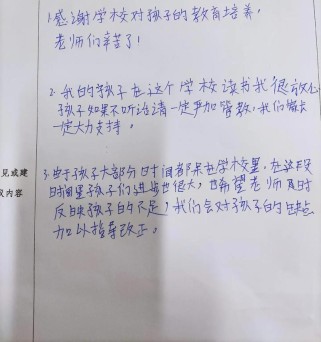 1.感谢学校对孩子的教育培养，
老师们辛苦了！
2.我的孩子在这个学校读书我很放心
孩子如果不听话请一定严加管教，我们做家
一定大力支持。
见或建
议内容
3.由于孩子大部分时间都呆在学校里，在这段
时间里孩子们进步也很大，希望老师及时
反映孩子的不足，我们会对孩子的缺点
加以指导改正。